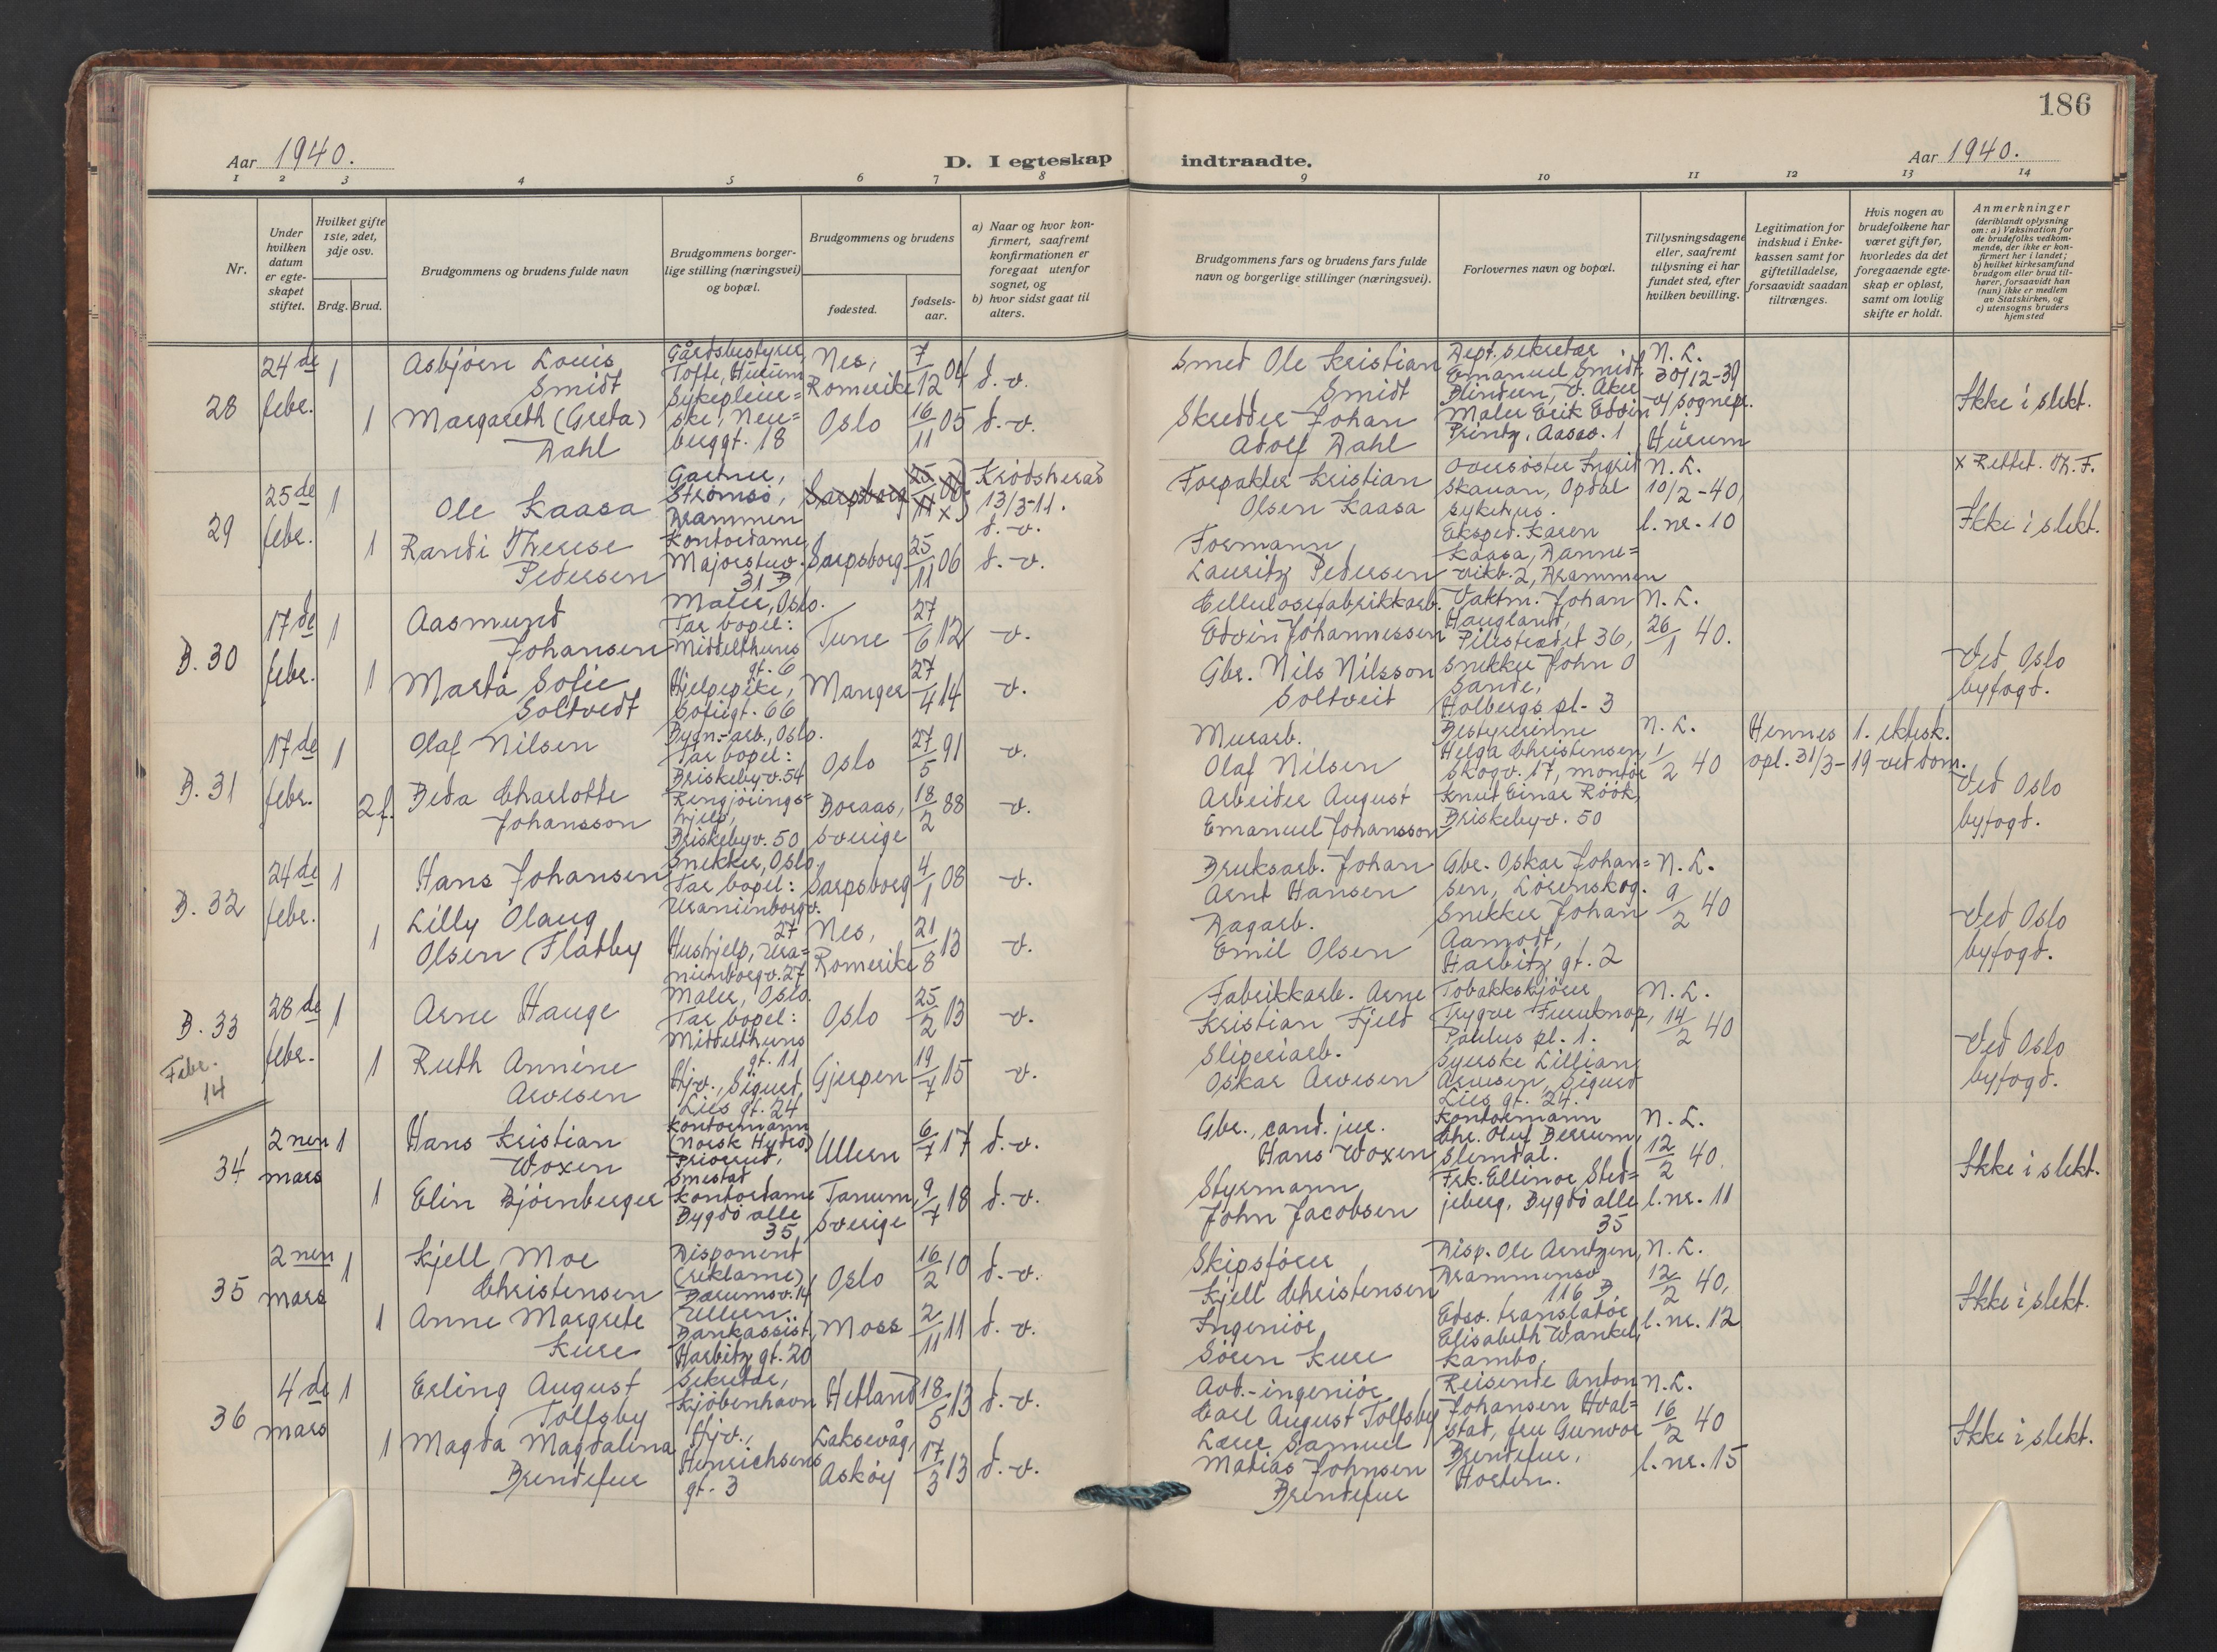 186
Aar 1940.
D. I egteskap indtraadte.
Aar 1940.
1 2 3 4 5 6 7 8 9 10 11 12 13 14
Nr.
Under hvilken datum er egteskapet stiftet.
Hvilket gifte 1ste, 2det, 3dje osv.
Brdg. Brud.
Brudgommens og brudens fulde navn
Brudgommens borgerlige stilling (næringsvei) og bopæl.
Brudgommens og brudens
fødested.
fødselsaar.
a) Naar og hvor konfirmert, saafremt konfirmationen er foregaat utenfor sognet, og
b) hvor sidst gaat til alters.
Brudgommens fars og brudens fars fulde navn og borgerlige stillinger (næringsvei).
Forlovernes navn og bopæl.
Tillysningsdagene eller, saafremt tillysning ei har fundet sted, efter hvilken bevilling.
Legitimation for indskud i Enkekassen samt for giftetilladelse, forsaavidt saadan tiltrænges.
Hvis nogen av brudefolkene har været gift før, hvorledes da det foregaaende egteskap er opløst, samt om lovlig skifte er holdt.
Anmerkninger
(deriblandt oplysning om: a) Vaksination for de brudefolks vedkommende, der ikke er konfirmert her i landet; b) hvilket kirkesamfund brudgom eller brud tilhører, forsaavidt han (hun) ikke er medlem av Statskirken, og c) utensogns bruders hjemsted
28
24de febr.
1
Asbjørn Louis Smidt
Gårdsbestyrer, Tofte, Hurum
Nes, Romerike
7/12 04
d. v.
Smed Ole Kristian Smidt
Dept. sekretær Emanuel Smidt, Blindern, V. Aker
N. L.
30/12-39
v/ sognepr. i Hurum
Ikke i slekt.
1
Margareth (Greta) Dahl
Sykepleierske, Neuberggt. 18
Oslo
16/11 05
d. v.
Skredder Johan Adolf Dahl
Maler Erik Edvin Printz, Aasav. 1
29
25de febr.
1
Ole Kaasa
Gartner, Strømsø, Drammen
Sarpsborg
25/11 06 x)
Krødsherad 13/3-11.
d. v.
Forpakter Kristian Olsen Kaasa
Oversøster Ingrid Skavan, Opdal sykehus.
N. L.
10/2-40,
l. nr. 10
x Rettet. Th. F.
Ikke i slekt.
1
Randi Therese Pedersen
Kontordame, Majorstuv. 31 B
Sarpsborg
25/11 06
d. v.
Formann, Lauritz Pedersen
Eksped. Karen Kaasa, Dannevikb. 2, Drammen
B. 30
17de febr.
1
Aasmund Johansen
Maler, Oslo. Tar bopel: Middelthuns gt. 6
Tune
27/6 12
v.
Cellulosefabrikkarb. Edvin Johannessen
Vaktm. Johan Haugland, Pilestredet 36,
N. L.
26/1 40.
Ved Oslo byfogd.
1
Marta Sofie Soltvedt
Hjelpepike, Sofiegt. 66
Manger
27/4 14
v.
Gbr. Nils Nilsson Soltveit
Snekker John O Sande, Holbergs pl. 3
B. 31
17de febr.
1
Olaf Nilsen
Bygn.-arb., Oslo. Tar bopel: Briskebyv. 54
Oslo
27/5 91
v.
Murarb. Olaf Nilsen
Bestyrerinne Helga Christensen, Skogv. 17, montør
N. L.
1/2 40
Hennes 1. ektesk. opl. 31/3-19 ved dom.
Ved Oslo byfogd.
2 f.
Beda Charlotte Johansson
Rengjøringshjelp, Briskebyv. 50
Boraas, Sverige
18/2 88
v.
Arbeider August Emanuel Johansson
Knut Einar Röök, Briskebyv. 50
B. 32
24de febr.
1
Hans Johansen
Snekker, Oslo. Tar bopel: Uranienborgv. 27
Sarpsborg
4/1 08
v.
Bruksarb. Johan Arnt Hansen
Gbr. Oskar Johansen, Lørenskog.
N. L.
9/2 40
Ved Oslo byfogd.
1
Lilly Olaug Olsen Flatby
Hushjelp, Uranienborgv. 27
Nes, Romerike
21/8 13
v.
Dagarb. Emil Olsen
Snekker Johan Aamodt, Harbitz gt. 2
B. 33
28de febr.
1
Arne Hauge
Maler, Oslo. Tar bopel: Middelthuns gt. 11
Oslo
25/2 13
v.
Fabrikkarb. Arne Kristian Fjeld
Tobakkskjører Trygve Furuknap, Paulus pl. 1.
N. L.
14/2 40
Ved Oslo byfogd.
Febr. 14
1
Ruth Annine Arvesen
Hjv., Sigurd Lies gt. 24
Gjerpen
19/7 15
v.
Sliperiarb. Oskar Arvesen
Syerske Lillian Arvesen, Sigurd Lies gt. 24.
34
2nen mars
1
Hans Kristian Woxen
Kontormann (Norsk Hydro) Smestad
Ullern
6/7 17
d. v.
Gbr., cand. jur. Hans Woxen
Kontormann Chr. Oluf Berrum, Slemdal.
N. L.
12/2 40.
l. nr. 11
Ikke i slekt.
1
Elin Bjørnberger
Kontordame Bygdø alle 35,
Tanum, Sverige
9/7 18
d. v.
Styrmann John Jacobsen
Frk. Ellinor Stedjeberg, Bygdø alle 35
35
2nen mars
1
Kjell Moe Christensen
Disponent (reklame), Bærumsv. 14 Ullern
Oslo
16/2 10
d. v.
Skipsfører Kjell Christensen
Disp. Ole Arntzen, Drammensv. 116 B
N. L.
12/2 40,
l. nr. 12
Ikke i slekt.
1
Anne Margrete Kure
Bankassist. Harbitz gt. 20
Moss
2/11 11
d. v.
Ingeniør Søren Kure
Edsv. translatør Elisabeth Wankel, Kambo.
36
4de mars
1
Erling August Tolfsby
Sekretær, Kjøbenhavn
Hetland
18/5 13
d. v.
Avd.-ingeniør Carl August Tolfsby
Reisende Anton Johansen Hvalstad,
N. L.
16/2 40
l. nr. 15
Ikke i slekt.
1
Magda Magdalina Brendefur
Hjv., Henrichsens gt. 3
Laksevåg, Askøy
17/3 13
d. v.
Lærer Samuel Matias Johnsen Brendefur
fru Gunvor Brendefur, Horten.